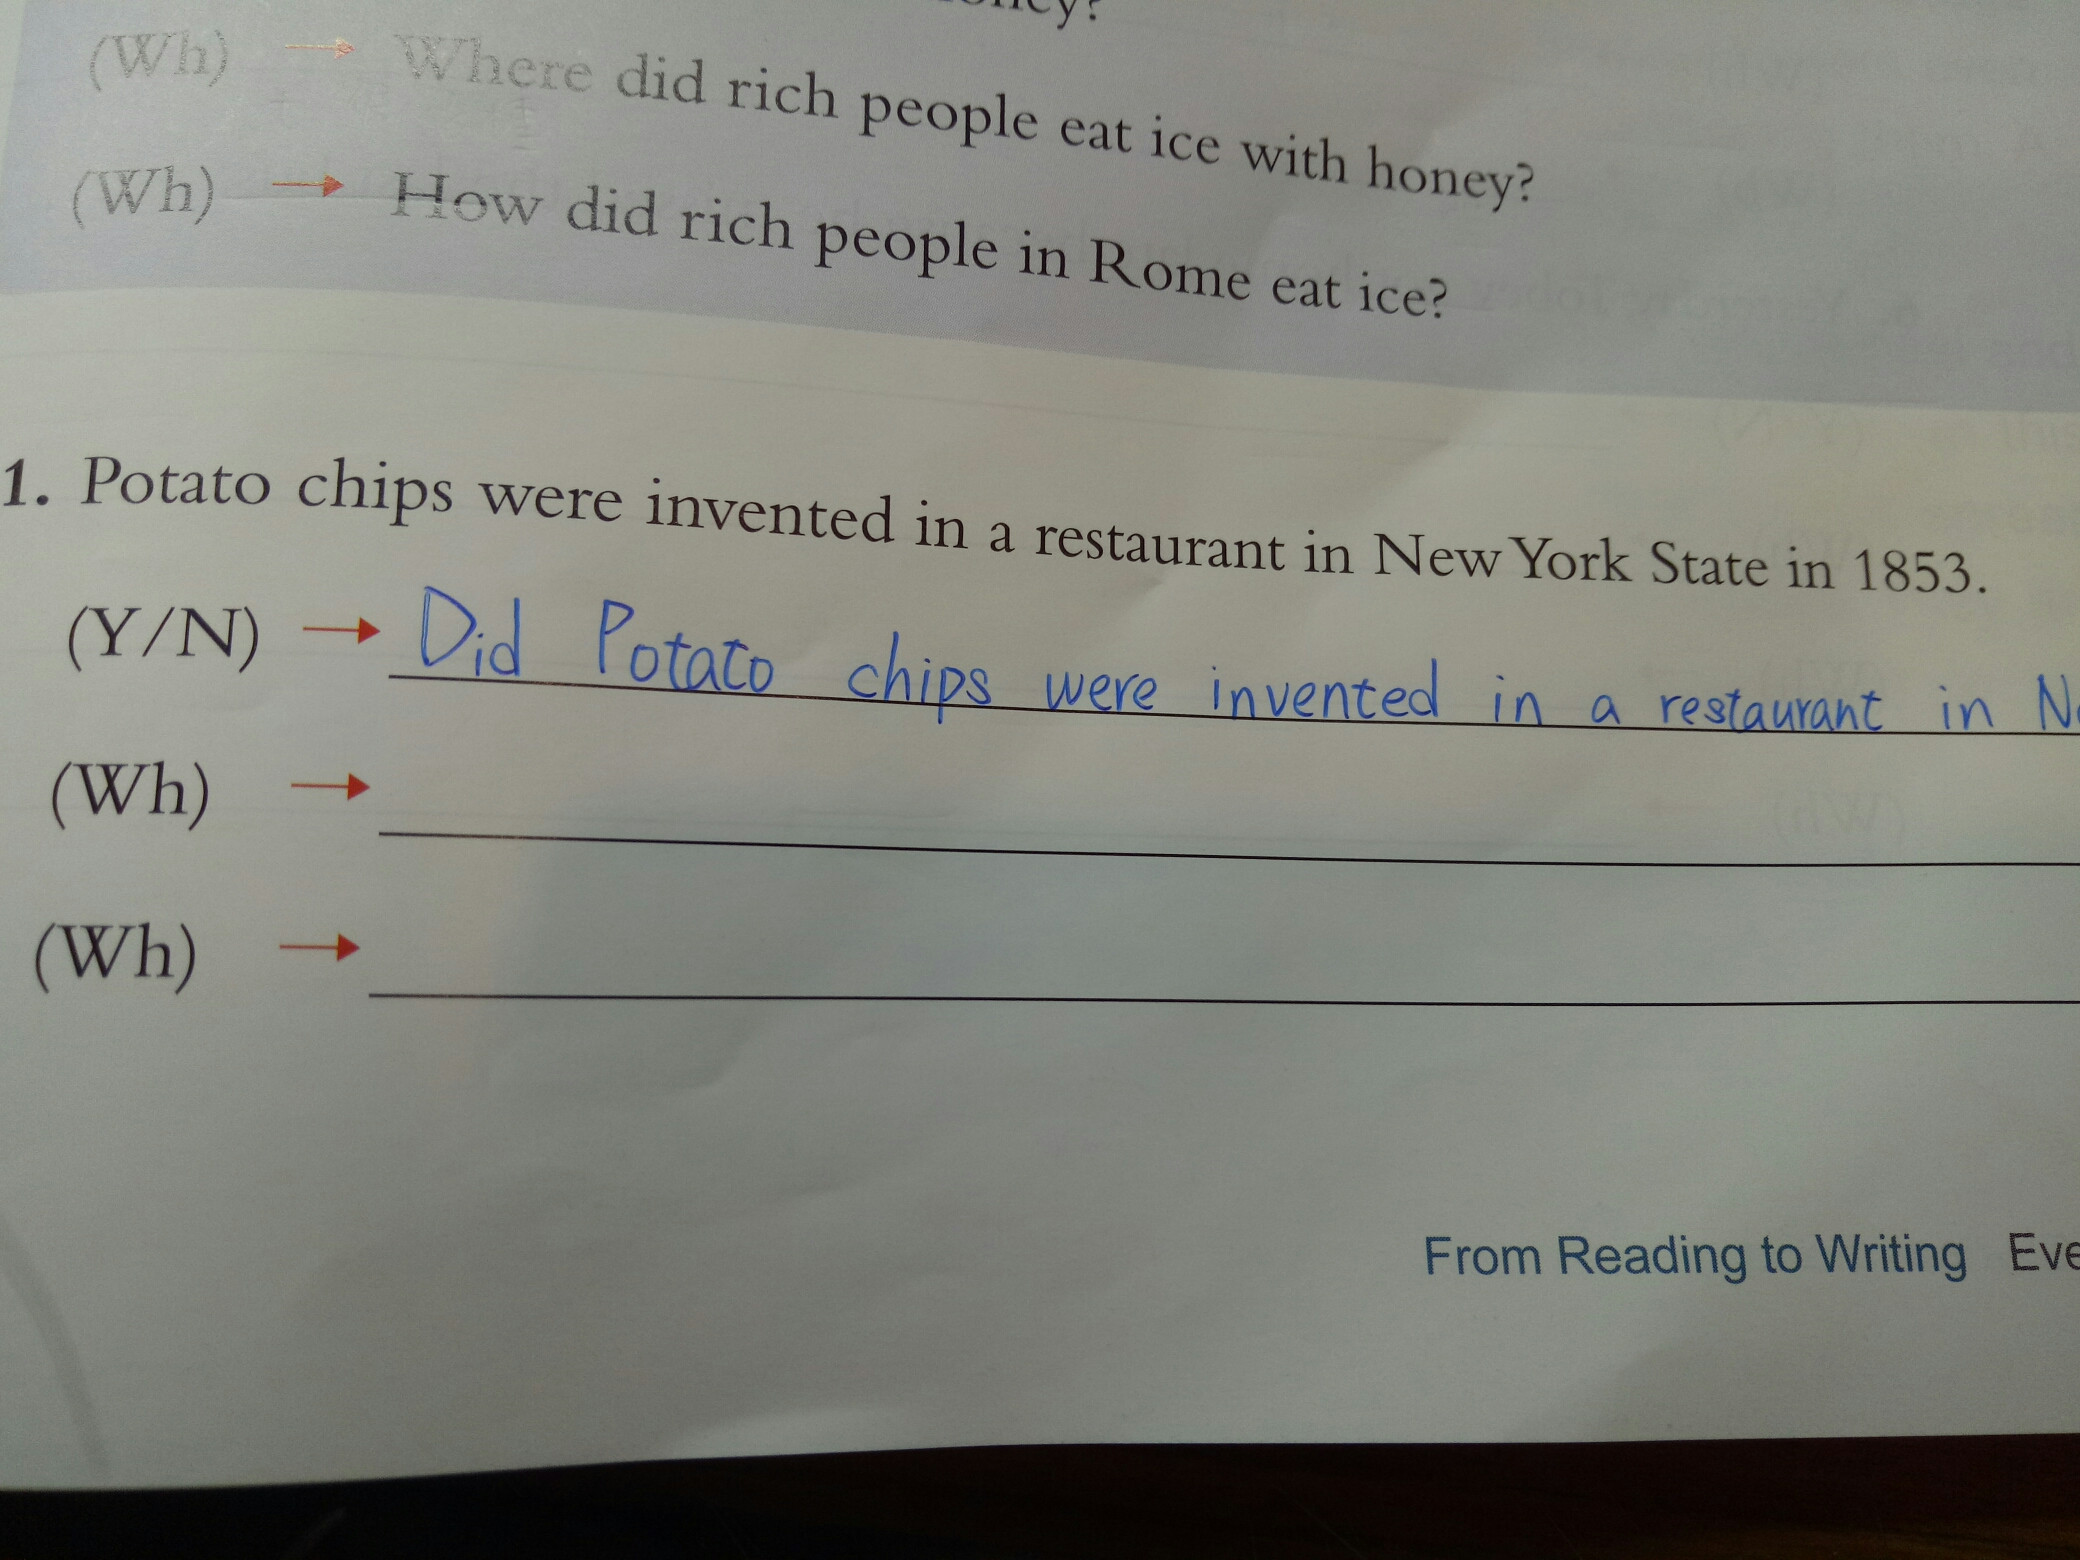 (Wh) → Where did rich people eat ice with honey?
(Wh) → How did rich people in Rome eat ice?
1. Potato chips were invented in a restaurant in New York State in 1853.
(Y/N) → Did Potato chips were invented in a restaurant in
(Wh) →
(Wh) →
From Reading to Writing